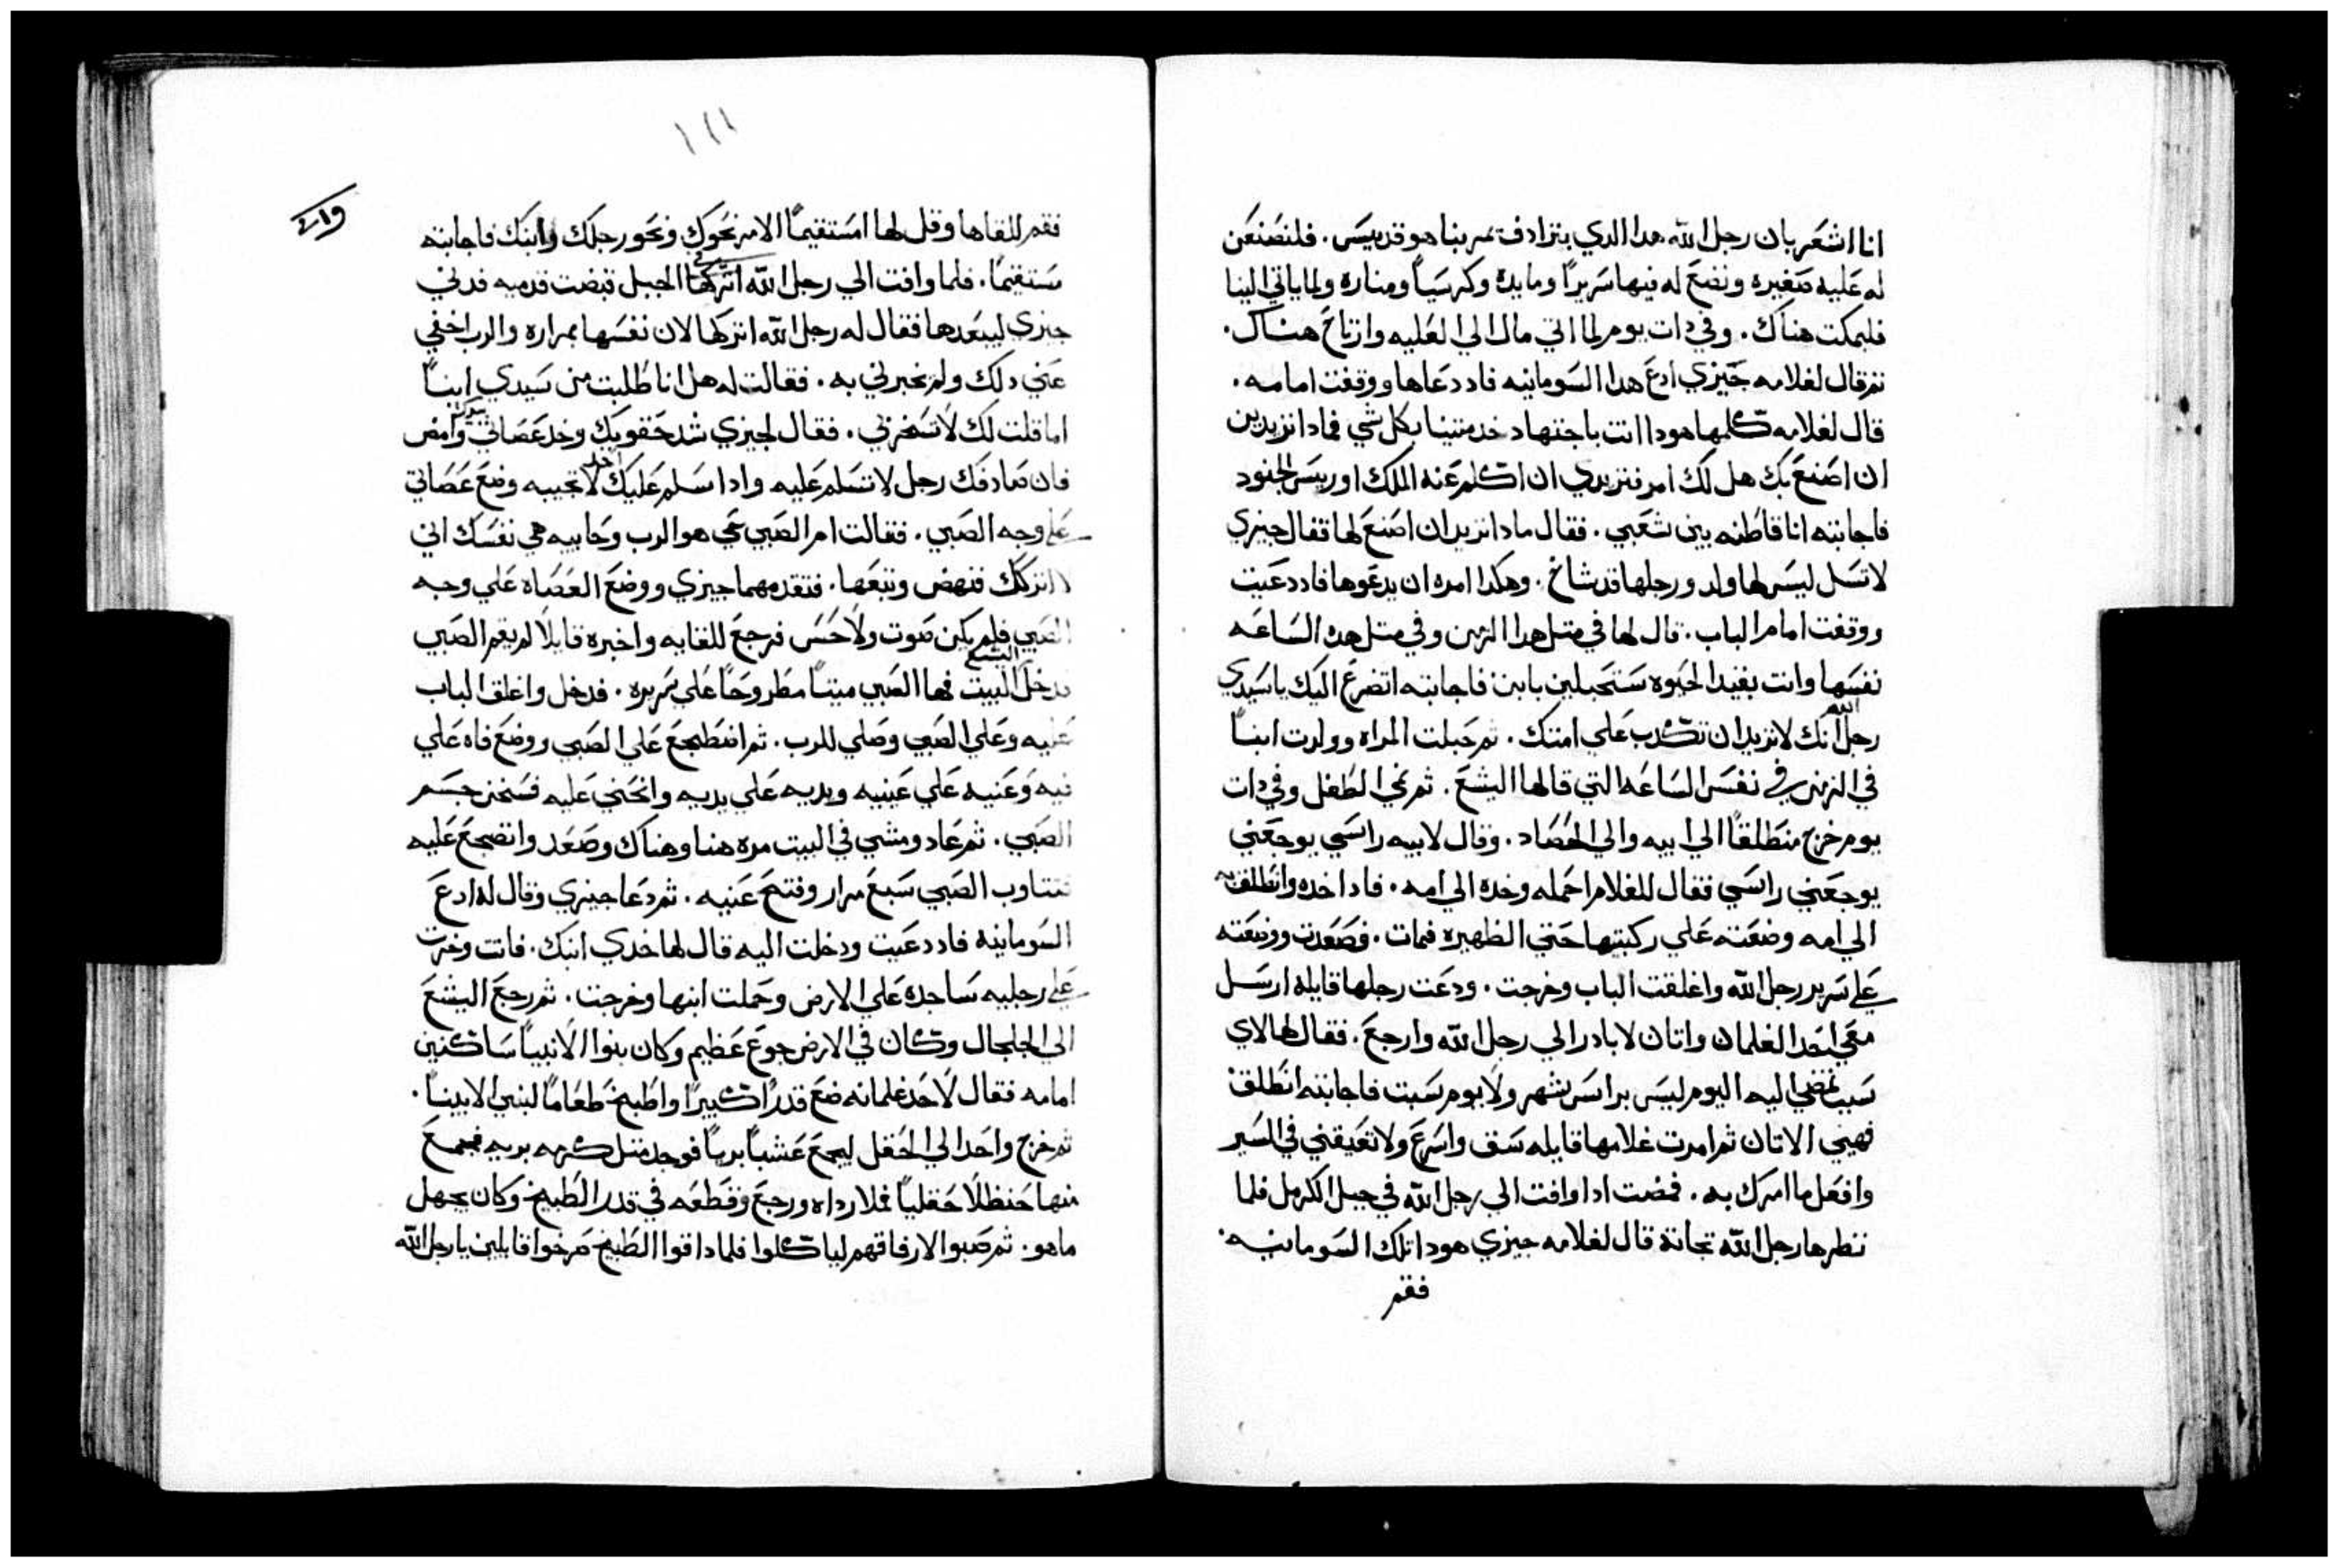 انا اشعر بان رجل الله هدا الدي يتزادف يمر بنا هو قديس. فلنصنعن
له عليه صغيره ونضع له فيها سريرًا ومايدة وكرسيًا ومناره ولما ياتي الينا
فليمكت هناك. وفي دات يوم لما اتي مال الي العليه وارتاح هناك.
تم قال لغلامه جيزي ادع هدا السومانيه فاد دعاها ووقفت امامه.
قال لغلامه كلمها هودا انت باجتهاد خدمتينا بكل شي فمادا تزيدين
ان اصنع بك هل لك امر فتريدي ان اكلم عنه الملك او رييس الجنود
فاجابته انا قاطنه بين شعبي. فقال مادا تريد ان اصنع لها فقال جيزي
لا تسل ليس لها ولد ورجلها قد شاخ. وهكدا امره ان يدعوها فاد دعيت
ووقفت امام الباب. قال لها في متل هدا الزمن وفي متل هده الساعه
نفسها وانت بقيد الحيوه ستحبلين بابن فاجابته اتضرع اليك يا سيدي
رجل الله انك لا تريد ان تكدب علي امتك. ثم حبلت المراه وولدت ابنًا
في الزمن في نفس الساعه التي قالها اليشع. ثم نمي الطفل وفي دات
يوم خرج منطلقًا الي ابيه والي الحصاد. وقال لابيه راسي يوجعني
يوجعني راسي فقال للغلام احمله وخده الي امه. فاد اخده وانطلق به
الي امه وضعته علي ركبتيها حتي الظهيره فمات. فصعدت ووضعته
علي سرير رجل الله واغلقت الباب وخرجت. ودعت رجلها قايلة ارسل
معي احد الغلمان واتان لابادر الي رجل الله وارجع. فقال لها لاي
سبب تمضي اليه اليوم ليس براس شهر ولا يوم سبت فاجابته انطلق
فهيي الاتان ثم امرت غلامها قايله سق واسرع ولا تعيقني في السير
وافعل ما امرك به. فمضت ادا وافت الي رجل الله في جبل الكرمل فلما
نظرها رجل الله تجاهة قال لغلامه جيزي هودا تلك السومانيه.
فقم
١١١
فقم للقاها وقل لها امستقيمًا الامر نحوك ونحو رجلك وابنك فاجابته
مستقيمًا. فلما وافت الي رجل الله في الجبل قبضت قدميه فدني
جيزي ليبعدها فقال له رجل الله اتركها لان نفسها بمراره والرب اخفي
عني دلك ولم يخبرني به. فقالت له هل انا طلبت من سيدي ابنًا
اما قلت لك لا تسخر بي. فقال لجيزي شد حقويك وخد عصاتي بيدك وامض
فان صادفك رجل لا تسلم عليه وادا سلم عليك احد لا تجيبه وضع عصاتي
علي وجه الصبي. فقالت ام الصبي حي هو الرب وحاييه هي نفسك اني
لا اتركك فنهض وتبعها. فتقدمهما جيزي ووضع العصاه علي وجه
الصبي فلم يكن صوت ولا حس فرجع للقايه واخبره قايلا لم يقم الصبي
فدخل اليشع البيت فها الصبي ميتًا مطروحًا علي سريره. فدخل واغلق الباب
عليه وعلي الصبي وصلي للرب. ثم اضطجع علي الصبي ووضع فاه علي
فيه وعنيه علي عينيه ويديه علي يديه وانحني عليه فسخن جسم
الصبي. ثم عاد ومشي في البيت مره هنا وهناك وصعد واتضجع عليه
فتتاوب الصبي سبع مرار وفتح عنيه. ثم دعا جيزي وقال له ادع
السومانية فاد دعيت ودخلت اليه قال لها خدي ابنك. فاتت وخرت
علي رجليه ساجده علي الارض وحملت ابنها وخرجت. ثم رجع اليشع
الي الجلجال وكان في الارض جوع عظيم وكان بنوا الانبيا ساكنين
امامه فقال لاحد غلمانه ضع قدرًا كبيرًا واطبخ طعامًا لبني الانبيا.
ثم خرج واحد الي الحقل ليجمع عشبًا بريًا فوجد متل كرمه بريه فجمع
منها حنظلًا حقليًا فملا رداه ورجع وقطعه في قدر الطبيخ وكان يجهل
ما هو. ثم صبوا لارفاقهم لياكلوا فلما داقوا الطبيخ صرخوا قايلين يا رجل الله